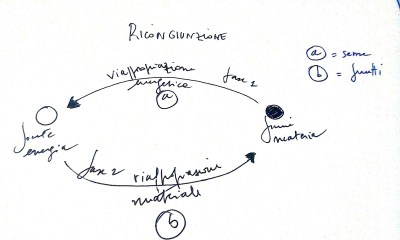 RICONGIUNZIONE
a = seme
b = frutti
riappropriazione
energetica
fase 2
a
fonte
energia
materia
fase 2 riappropriazione
materiale
b